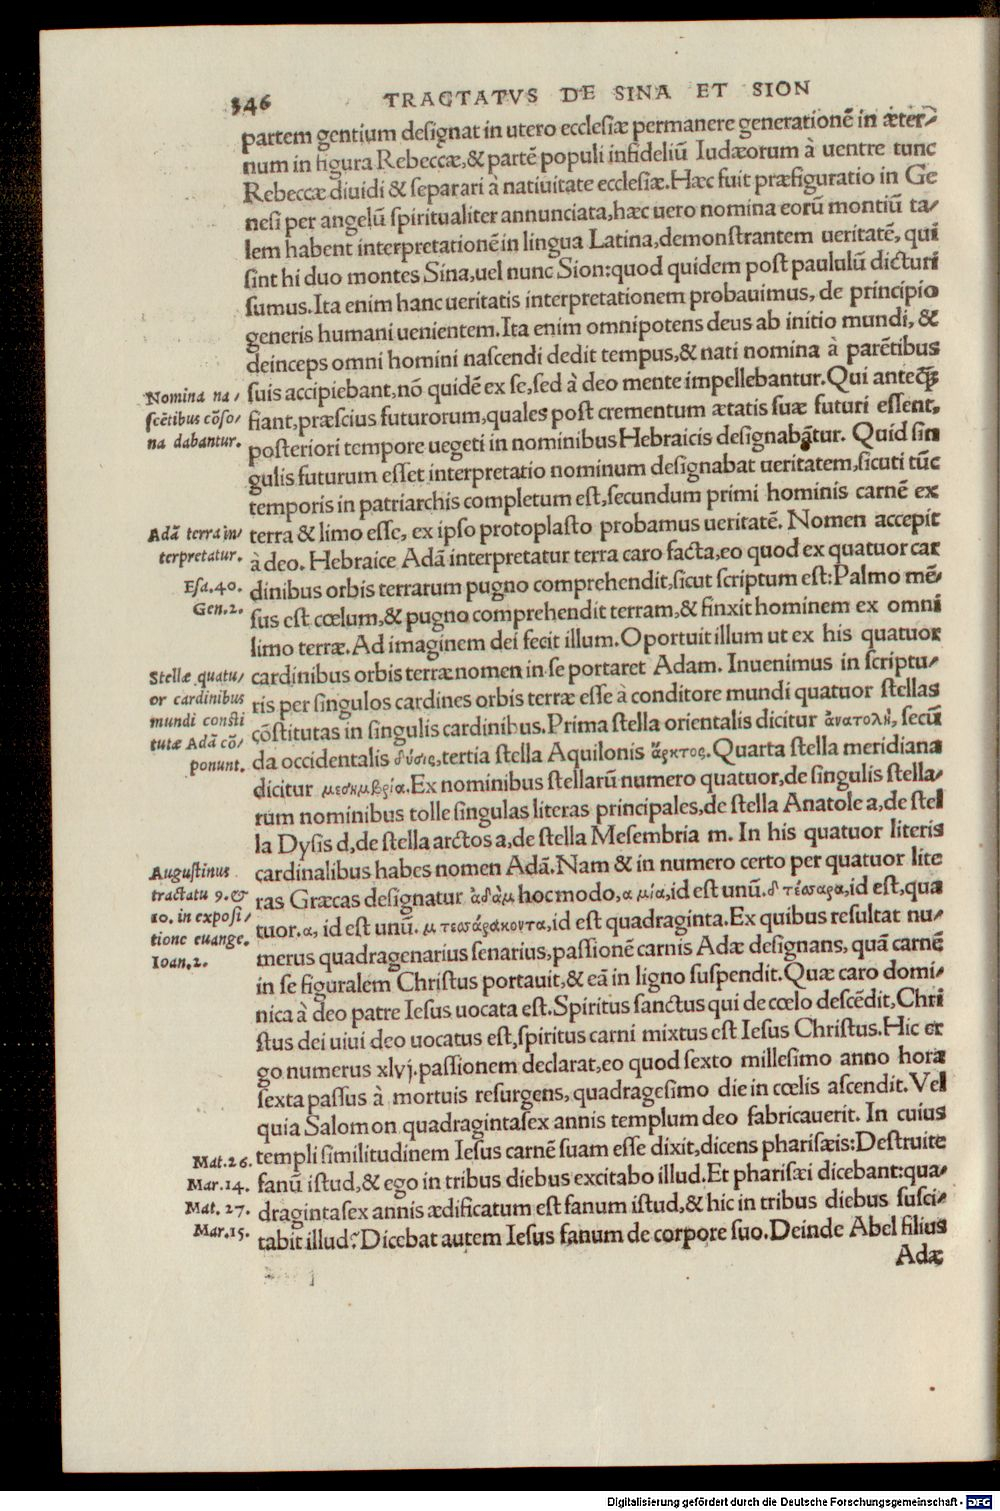 346 TRACTATVS DE SINA ET SION
partem gentium designat in utero ecclesiæ permanere generationē in æter⸗
num in figura Rebeccæ,& partē populi infideliū Iudæorum à uentre tunc
Rebeccæ diuidi & separari à natiuitate ecclesiæ.Hæc fuit præfiguratio in Ge
nesi per angelū spiritualiter annunciata,hæc uero nomina eorū montiū ta⸗
lem habent interpretationē in lingua Latina,demonstrantem ueritatē, qui
sint hi duo montes Sina,uel nunc Sion:quod quidem post paululū dicturi
sumus.Ita enim hanc ueritatis interpretationem probauimus, de principio
generis humani uenientem.Ita enim omnipotens deus ab initio mundi, &
deinceps omni homini nascendi dedit tempus,& nati nomina à parētibus
Nomina na⸗
scētibus cōso⸗
na dabantur.
suis accipiebant,nō quidē ex se,sed à deo mente impellebantur.Qui anteq̄
fiant,præscius futurorum,quales post crementum ætatis suæ futuri essent,
posteriori tempore uegeti in nominibus Hebraicis designabātur. Quid sin
gulis futurum esset interpretatio nominum designabat ueritatem,sicuti tūc
temporis in patriarchis completum est,secundum primi hominis carnē ex
Adā terra in⸗
terpretatur.
Esa.40.
Gen.2.
terra & limo esse, ex ipso protoplasto probamus ueritatē. Nomen accepit
à deo. Hebraice Adā interpretatur terra caro facta,eo quod ex quatuor car
dinibus orbis terrarum pugno comprehendit,sicut scriptum est:Palmo mē⸗
sus est cœlum,& pugno comprehendit terram,& finxit hominem ex omni
limo terræ.Ad imaginem dei fecit illum.Oportuit illum ut ex his quatuor
Stellæ quatu⸗
or cardinibus
mundi consti
tutæ Adā cō⸗
ponunt.
cardinibus orbis terræ nomen in se portaret Adam. Inuenimus in scriptu⸗
ris per singulos cardines orbis terræ esse à conditore mundi quatuor stellas
cōstitutas in singulis cardinibus.Prima stella orientalis dicitur ἀνατολὴ, secū
da occidentalis δύσις,tertia stella Aquilonis ἄρκτος.Quarta stella meridiana
dicitur μεσημβρία.Ex nominibus stellarū numero quatuor,de singulis stella⸗
rum nominibus tolle singulas literas principales,de stella Anatole a,de stel
la Dysis d,de stella arctos a,de stella Mesembria m. In his quatuor literis
Augustinus
tractatu 9.&
10. in exposi⸗
tione euange.
Ioan.2.
cardinalibus habes nomen Adā.Nam & in numero certo per quatuor lite
ras Græcas designatur ἀδὰμ hoc modo,α μία,id est unū.δ τέσσαρα,id est,qua
tuor.α, id est unū. μ τεσσάρακοντα,id est quadraginta.Ex quibus resultat nu⸗
merus quadragenarius senarius,passionē carnis Adæ designans, quā carnē
in se figuralem Christus portauit,& eā in ligno suspendit.Quæ caro domi⸗
nica à deo patre Iesus uocata est.Spiritus sanctus qui de cœlo descēdit,Chri
stus dei uiui deo uocatus est,spiritus carni mixtus est Iesus Christus.Hic er
go numerus xlvj.passionem declarat,eo quod sexto millesimo anno hora
sexta passus à mortuis resurgens, quadragesimo die in cœlis ascendit.Vel
quia Salomon quadragintasex annis templum deo fabricauerit. In cuius
Mat.26.
Mar.14.
Mat. 27.
Mar.15.
templi similitudinem Iesus carnē suam esse dixit,dicens pharisæis:Destruite
fanū istud,& ego in tribus diebus excitabo illud.Et pharisæi dicebant:qua⸗
dragintasex annis ædificatum est fanum istud,& hic in tribus diebus susci⸗
tabit illud?Dicebat autem Iesus fanum de corpore suo.Deinde Abel filius
Adæ
Digitalisierung gefördert durch die Deutsche Forschungsgemeinschaft - DFG